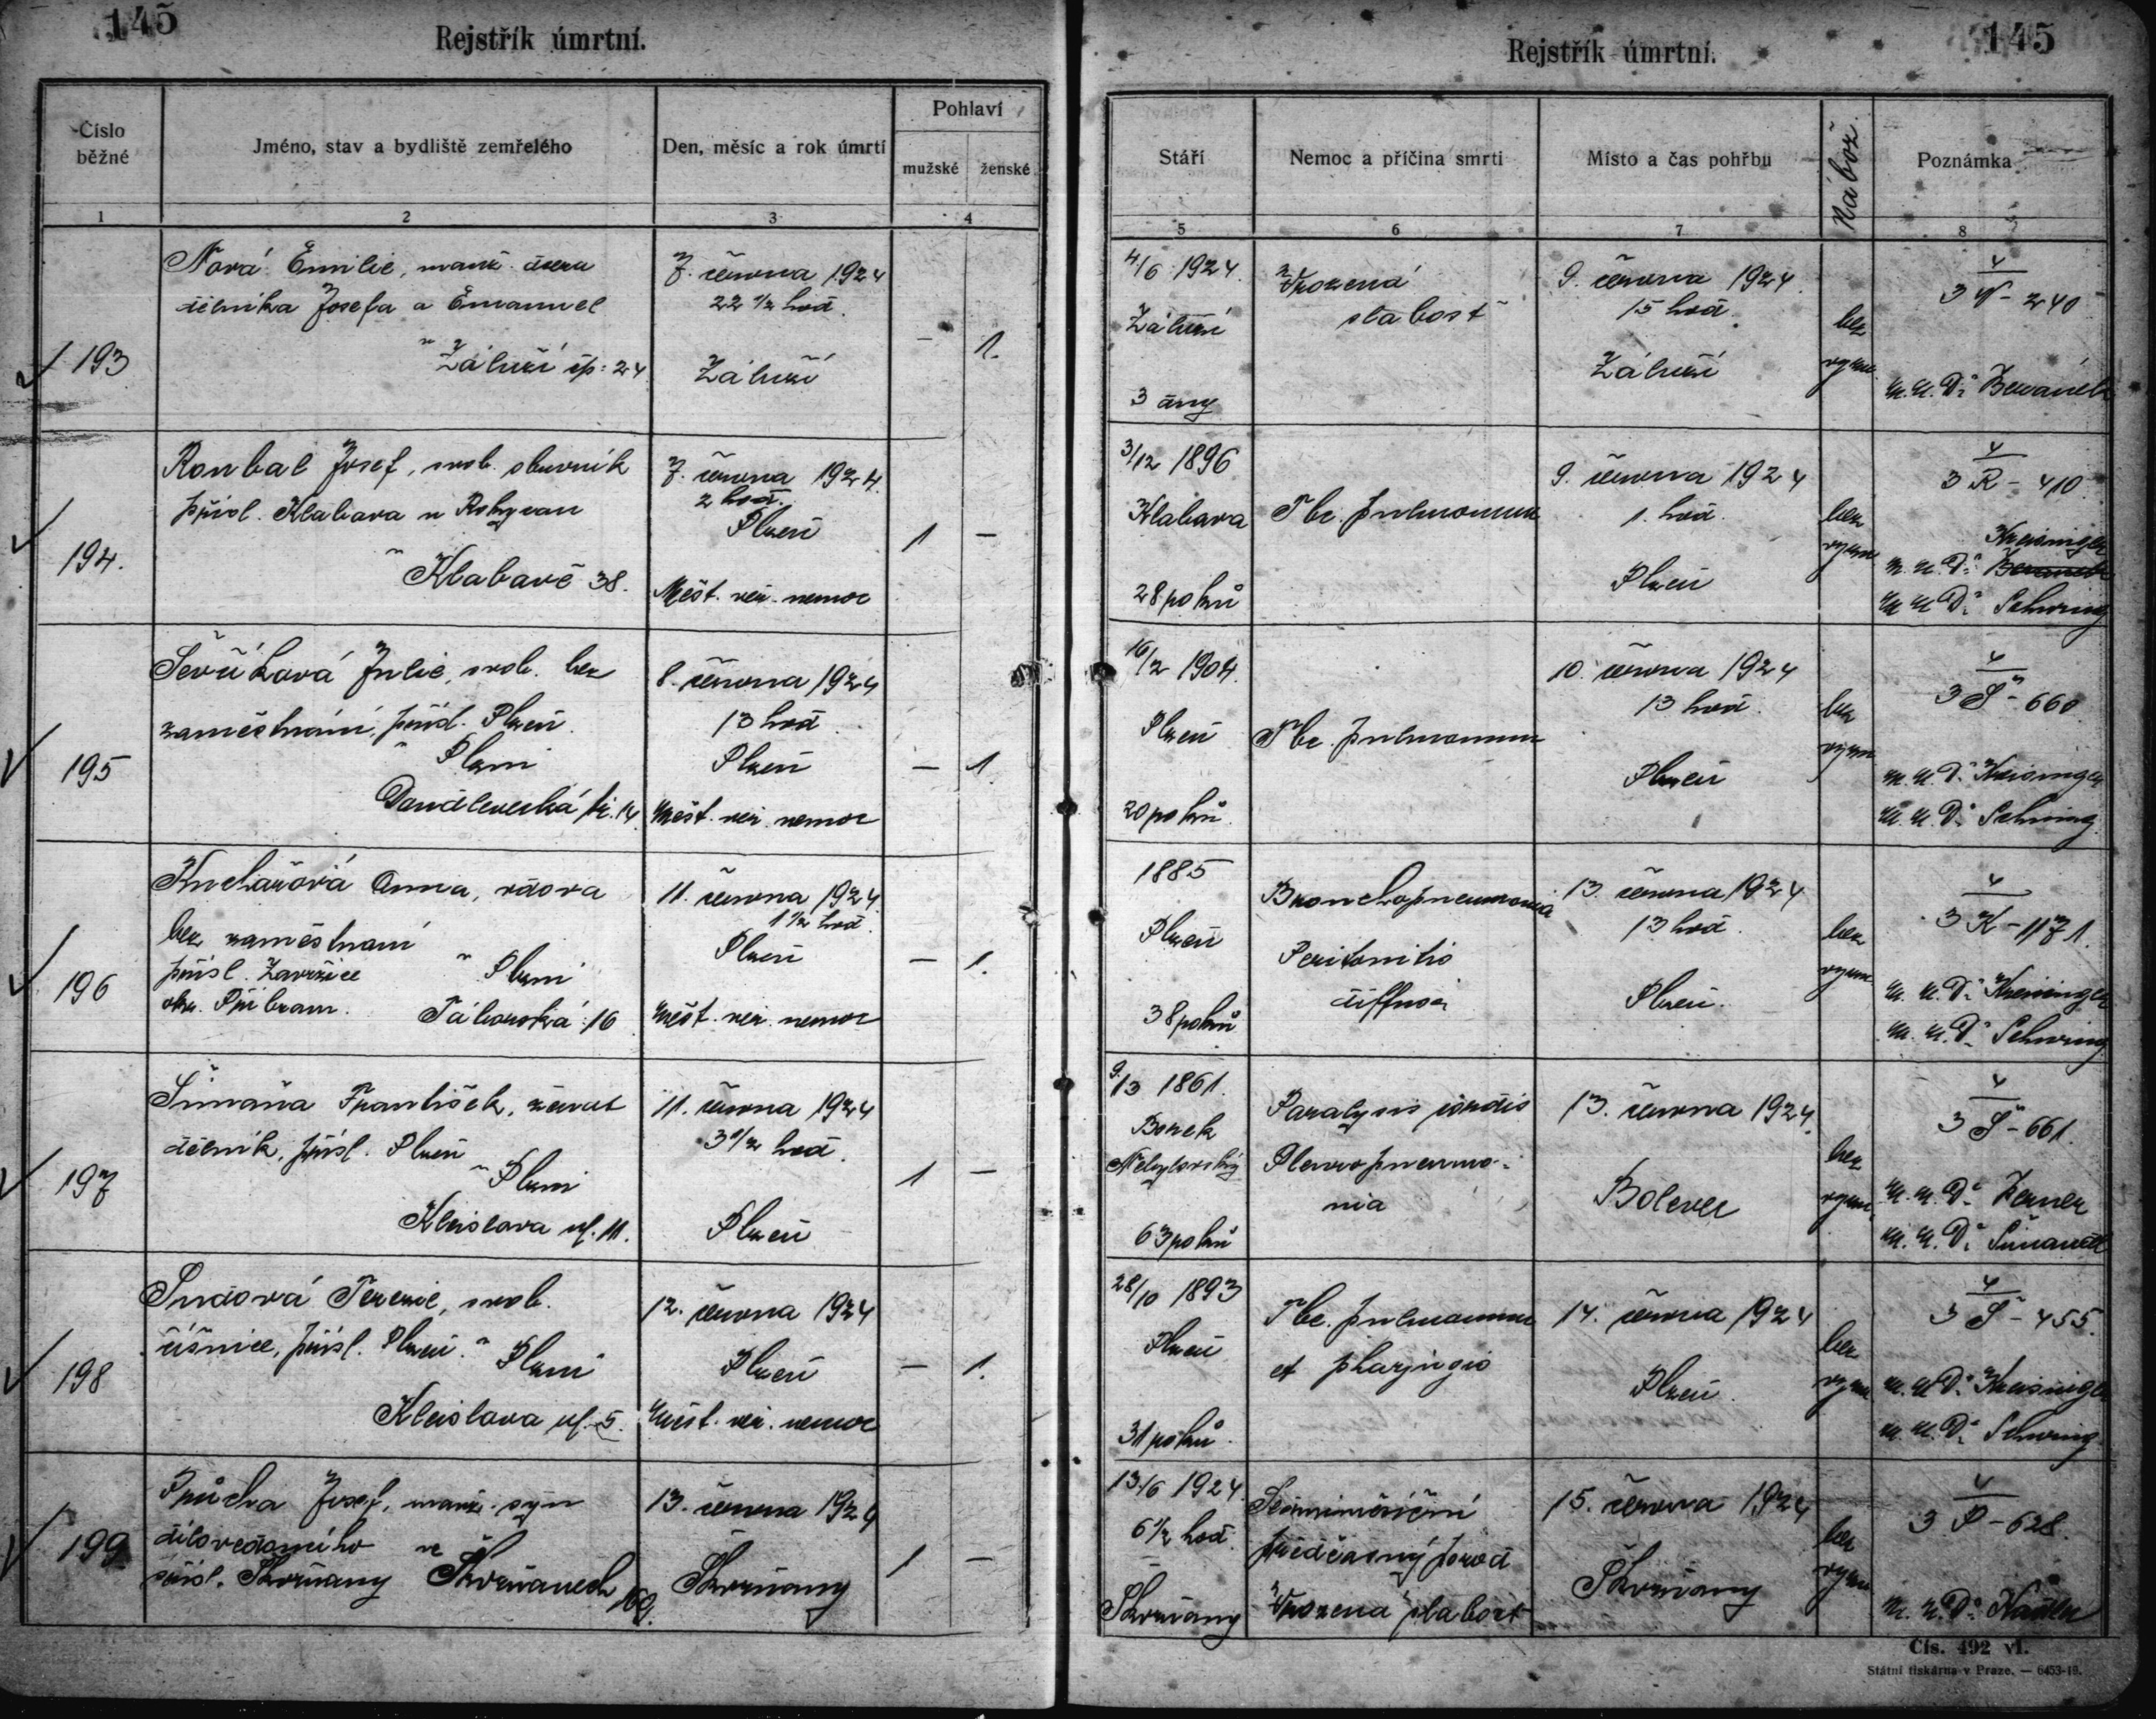 145
Rejstřík úmrtní.
Číslo běžné
Jméno, stav a bydliště zemřelého
Den, měsíc a rok úmrtí
Pohlaví
mužské
ženské
1
2
3
4
193
Nová Emilie, manž. dcera
dělníka Josefa a
v Záluží čp: 24
7. června 1924
22 1/2 hod.
Záluží
–
1.
194.
Roubal Josef, svob. obuvník
přísl. Klabava u Rokycan
v Klabavě 38.
7. června 1924.
2 hod.
Plzeň
Měst. veř. nemoc
1
–
195
Ševčíková Julie, svob. bez
zaměstnání, přísl. Plzeň.
v Plzni
Doudlevecká tř. 14
8. června 1924
13 hod.
Plzeň
Měst. veř. nemoc
–
1.
196
Kuchařová Anna, vdova
bez zaměstnaní
přísl.
v Plzni
okr. Příbram.
Táborská: 16
11. června 1924
1 1/2 hod.
Plzeň
Měst. veř. nemoc
–
1.
197
Šimaňa František, ženat
dělník, přísl. Plzeň
v Plzni
Klaislova ul. 11.
11. června 1924
3 1/2 hod.
Plzeň
1
–
198
Terezie, svob.
přísl. Plzeň.
v Plzni
Klaislova ul. 5.
12. června 1924
Plzeň
Měst. veř. nemoc
–
1.
199
Průcha Josef, manž. syn
dílovedoucího
přísl. Skvrňany
ve Skvrňanech
169.
13. června 1924
Skvrňany
1
–
145
Rejstřík úmrtní.
Stáří
Nemoc a příčina smrti
Místo a čas pohřbu
Nábož.
Poznámka
5
6
7
8
4/6 1924.
Záluží
3 dny
Vrozená
slabost
9. června 1924.
15 hod.
Záluží
bez
vyzn.
4
3 N - 240
M.U.Dr.
3/12 1896
Klabava
28 roků
Tbc. pulmonum
9. června 1924
1. hod.
Plzeň
bez
vyzn.
4
3 R - 410.
Kreisinger
M.U.Dr.
M.U.Dr. Schwing
16/2 1904.
Plzeň
20 roků.
Tbc. pulmonum
10. června 1924
13 hod.
Plzeň
bez
vyzn.
4
3 Š - 660
M.U.Dr. Kreisinger
M.U.Dr. Schwing
1885
Plzeň
38 roků
Bronchopneumonia
Peritonitis
diffusa
13. června 1924
13 hod.
Plzeň.
bez
vyzn.
4
3 K - 1171.
M.U.Dr. Kreisinger
M.U.Dr. Schwing
9/3 1861.
Borek
63 roků
Paralysis cordis
Pleuropneumo-
nia
13. června 1924.
Bolevec
bez
vyzn.
4
3 Š - 661.
M.U.Dr.
M.U.Dr.
28/10 1893
Plzeň
31 roků.
Tbc. pulmonum
et pharyngis
14. června 1924
Plzeň.
bez
vyzn.
4
3 S - 455.
M.U.Dr. Kreisinger
M.U.Dr. Schwing
13/6 1924.
6 1/2 hod.
Skvrňany
Sedmiměsíční
předčasný porod
Vrozená slabost
15. června 1924
Skvrňany
bez
vyzn.
4
3 P - 628.
M.U.Dr.
Čís. 492 vl.
Státní tiskárna v Praze. — 6453-19.